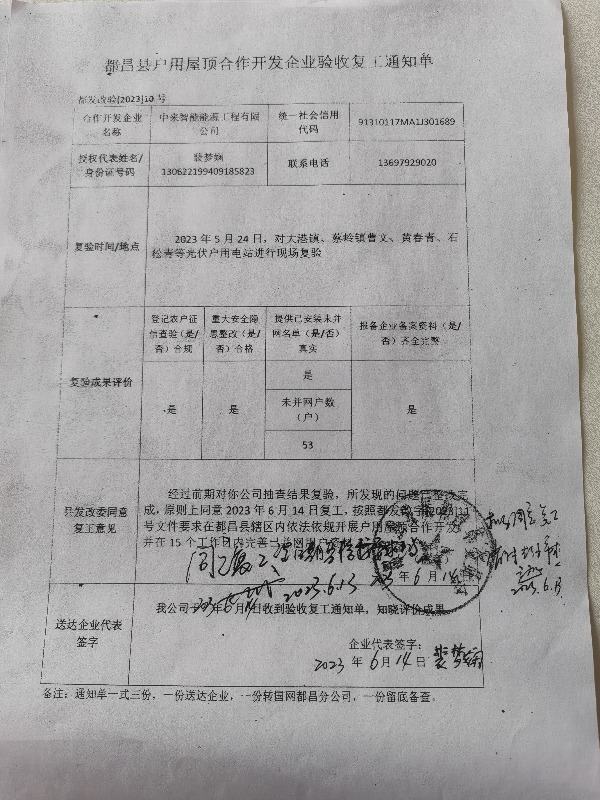 都昌县户用屋顶合作开发企业验收复工通知单
都发改验[2023]10 号
合作开发企业
名称
中来智能能源工程有限
公司
统一社会信用
代码
91310117MA1J301689
授权代表姓名/
身份证号码
裴梦娴
130622199409185823
联系电话
13697929020
复验时间/地点
2023 年 5 月 24 日，对大港镇、蔡岭镇曹文、黄春青、石
松青等光伏户用电站进行现场复验
复验成果评价
登记农户征
信查验（是/
否）合规
重大安全隐
患整改（是/
否）合格
提供已安装未并
网名单（是/否）
真实
报备企业备案资料（是/
否）齐全完整
是
是
是
未并网户数
（户）
53
是
县发改委同意
复工意见
经过前期对你公司抽查结果复验，所发现的问题已整改完
成，原则上同意 2023 年 6 月 14 日复工，按照都发改字[2023]11
号文件要求在都昌县辖区内依法依规开展户用屋顶合作开发
并在 15 个工作日内完善已并网用户资料
同意复工
2023.6.13
年 6 月 14 日
2023.6.13
送达企业代表
签字
我公司于 年 6 月 日收到验收复工通知单，知晓评价成果
企业代表签字：
2023 年 6 月 14 日 裴梦娴
备注：通知单一式三份，一份送达企业，一份转国网都昌分公司，一份留底备查。